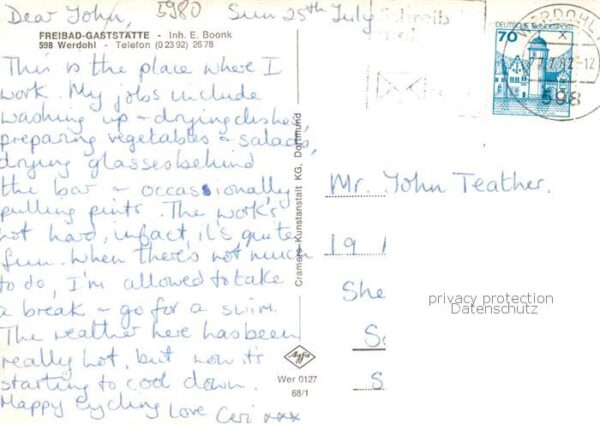 Dear John, 5980 Sun 25th July
FREIBAD-GASTSTÄTTE - Inh. E. Boonk
598 Werdohl - Telefon (0 23 92) 26 78
This is the place where I
work. My jobs include
washing up + drying dishes,
preparing vegetables + salads,
drying glasses behind
the bar + occassionally
pulling pints. The work's
not hard, infact, it's quite
fun. When there's not much
to do, I'm allowed to take
a break + go for a swim.
The weather here has been
really hot, but now it's
starting to cool down.
Happy Cycling Love Ceri xxx
Cramers-Kunstanstalt KG, Dortmund
Agfa
Wer 0127
68/1
Schreib
DEUTSCHE BUNDESPOST
70
WERDOHL 1
598
Mr. John Teather.
19
She
S
privacy protection
Datenschutz